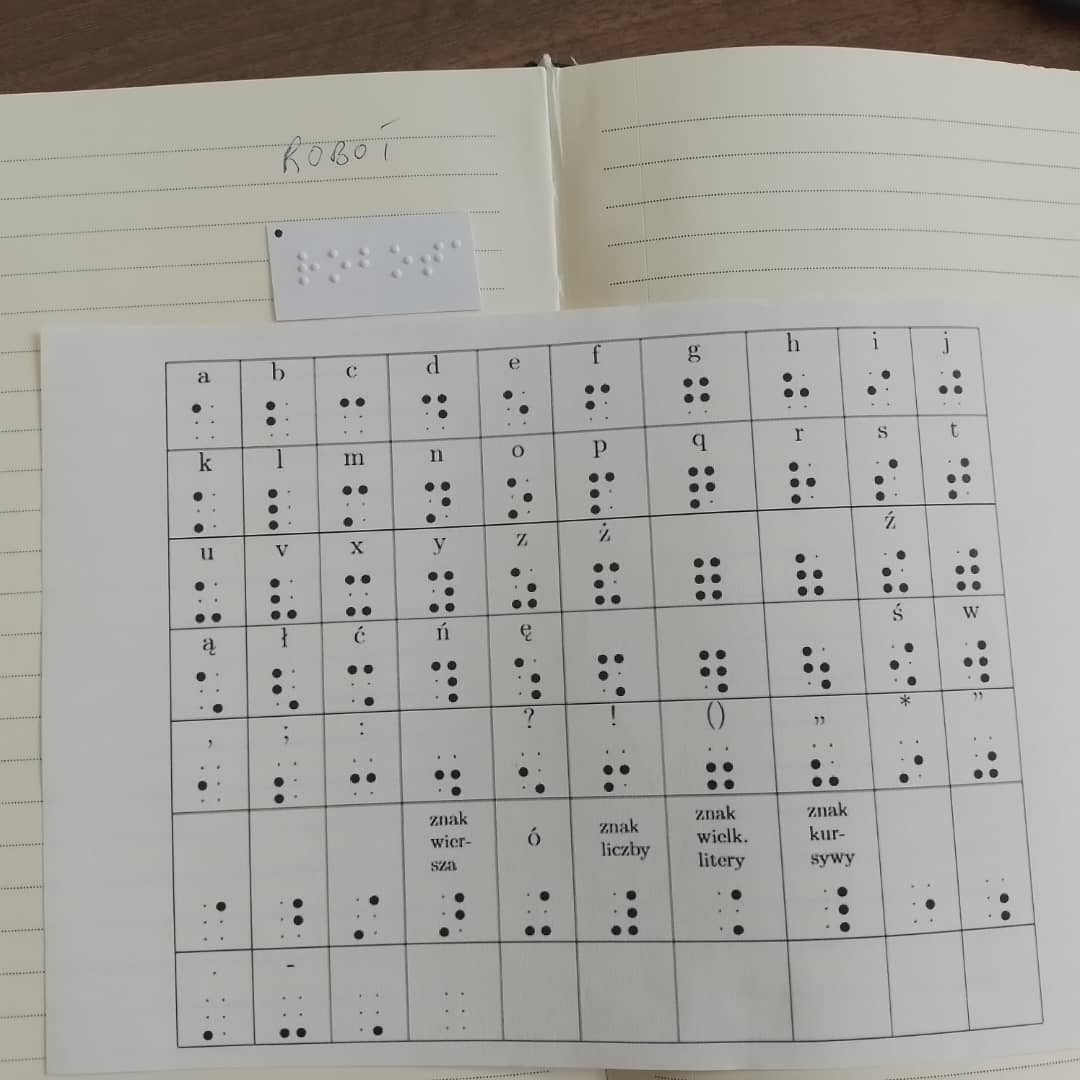 ROBOT
⠗⠕⠃⠕⠞⠁
a b c d e f g h i j
k l m n o p q r s t
u v x y z ż ź
ą ł ć ń ę ś w
, ; : ? ! () „ * ”
znak wier-sza ó znak liczby znak wielk. litery znak kur-sywy
. -